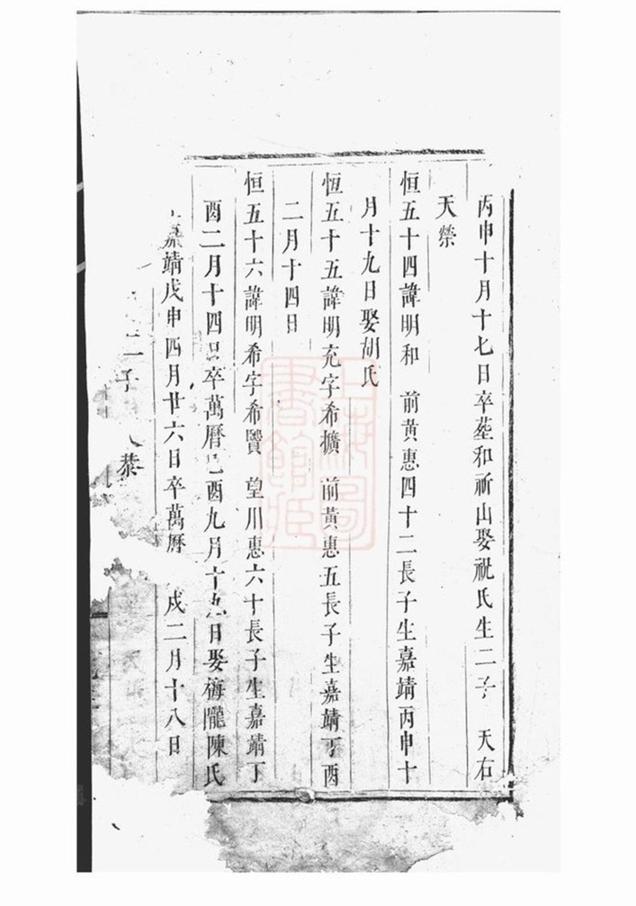 丙申十月十七日卒塟和祈山娶祝氏生二子 天右
天榮
恒五十四諱明和 前黃惠四十二長子生嘉靖丙申十
月十九日娶胡氏
恒五十五諱明充字希擴 前黃惠五長子生嘉靖丁酉
二月十四日
恒五十六諱明希字希贒 望川惠六十長子生嘉靖丁
酉二月十四日卒萬曆己酉九月十九日娶梅隴陳氏
嘉靖戊申四月廿六日卒萬曆 戌二月十八日
二子 恭
圖
書館